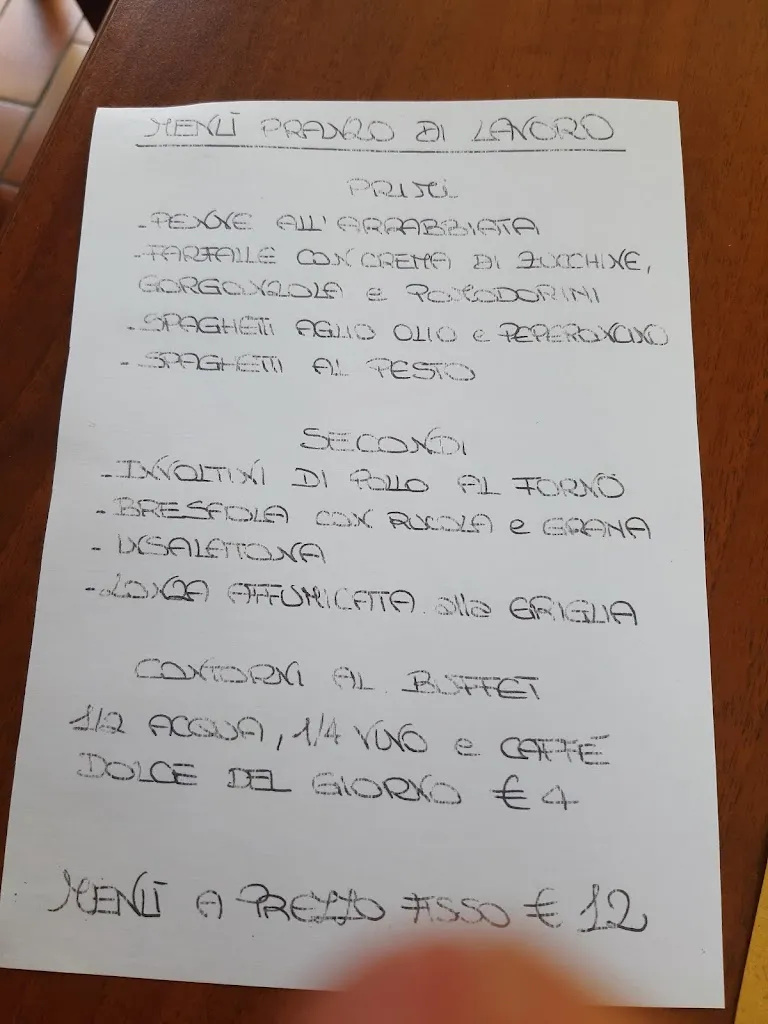 MENÙ PRANZO DI LAVORO
PRIMI
- PENNE ALL'ARRABBIATA
- FARFALLE CON CREMA DI ZUCCHINE,
GORGONZOLA e POMODORINI
- SPAGHETTI AGLIO OLIO e PEPERONCINO
- SPAGHETTI AL PESTO
SECONDI
- INVOLTINI DI POLLO AL FORNO
- BRESAOLA CON RUCOLA e GRANA
- INSALATONA
- LONZA AFFUMICATA alla GRIGLIA
CONTORNI AL BUFFET
1/2 ACQUA, 1/4 VINO e CAFFÈ
DOLCE DEL GIORNO € 4
MENÙ A PREZZO FISSO € 12